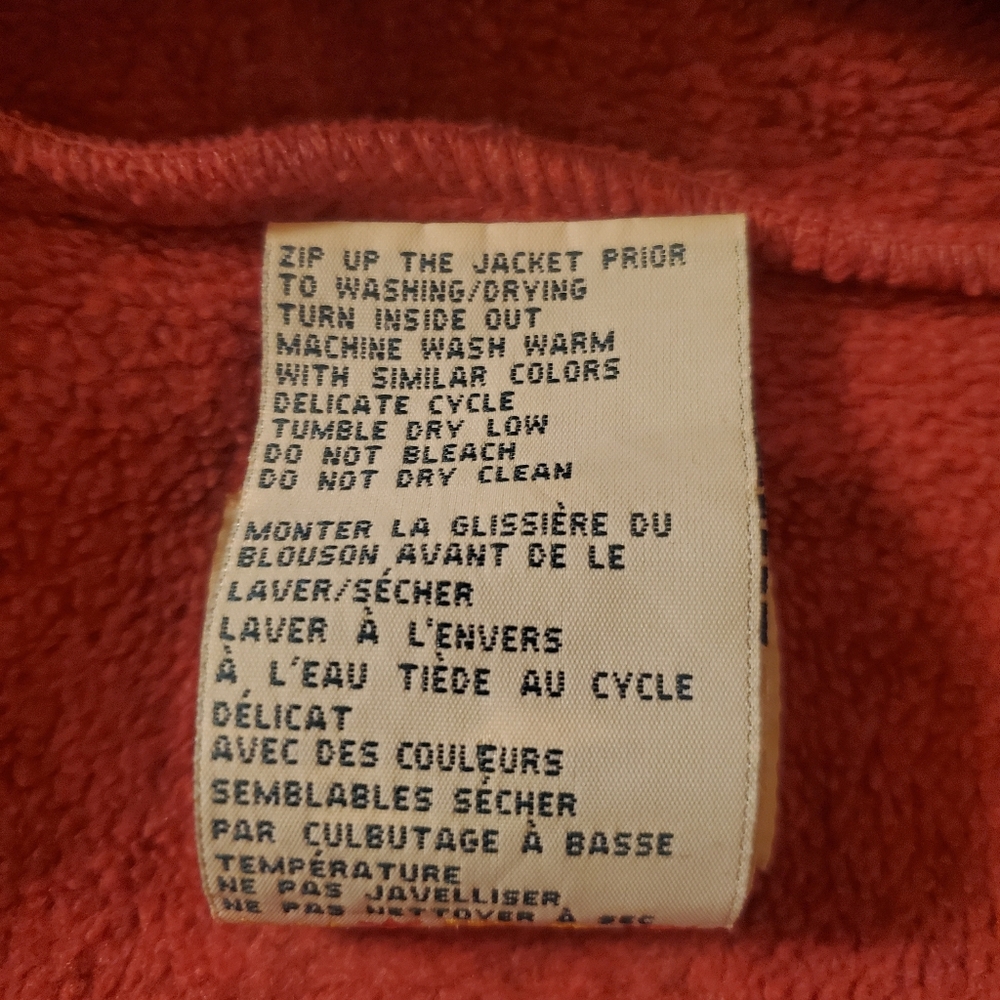 ZIP UP THE JACKET PRIOR
TO WASHING/DRYING
TURN INSIDE OUT
MACHINE WASH WARM
WITH SIMILAR COLORS
DELICATE CYCLE
TUMBLE DRY LOW
DO NOT BLEACH
DO NOT DRY CLEAN
MONTER LA GLISSIÈRE DU
BLOUSON AVANT DE LE
LAVER/SÉCHER
LAVER À L'ENVERS
À L'EAU TIÈDE AU CYCLE
DÉLICAT
AVEC DES COULEURS
SEMBLABLES SÉCHER
PAR CULBUTAGE À BASSE
TEMPÉRATURE
NE PAS JAVELLISER
NE PAS NETTOYER À SEC